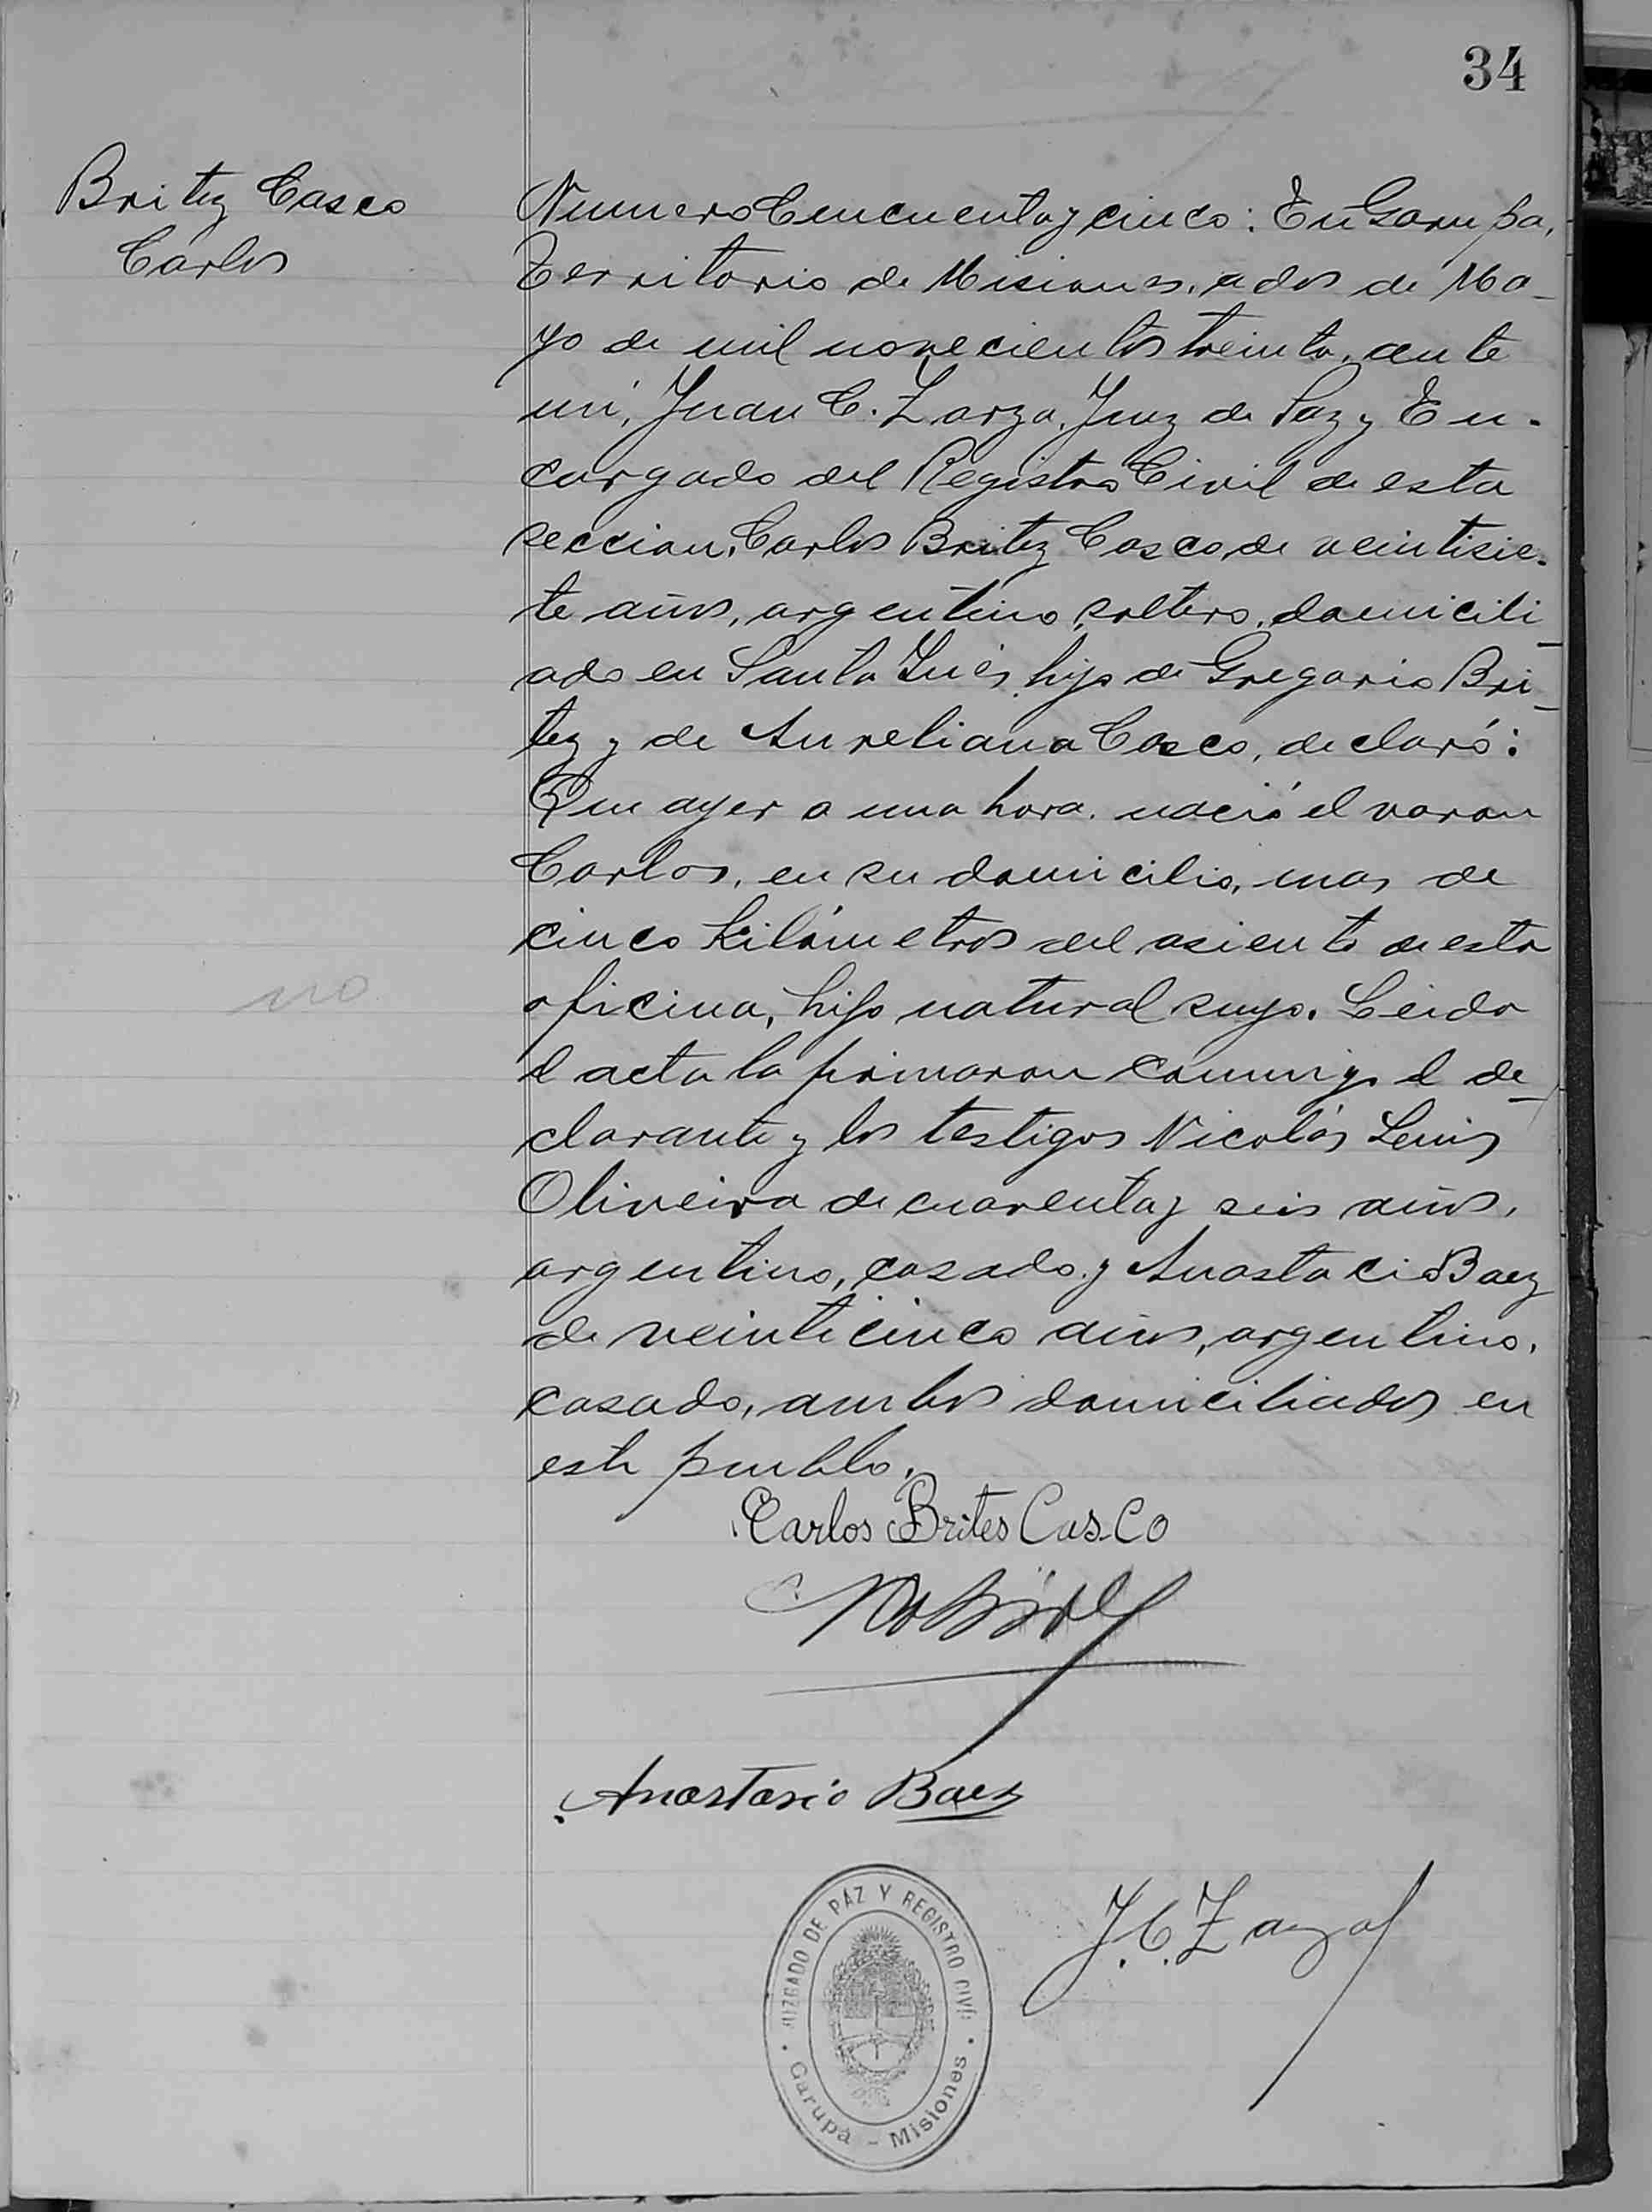 34
Britez Casco
Carlos
Numero Cincuenta y cinco: En Garupa,
Territorio de Misiones, a dos de Ma-
yo de mil novecientos treinta, ante
mí, Juan C. Zarza, Juez de Paz y En-
cargado del Registro Civil de esta
seccion, Carlos Britez Casco de veintisie-
te años, argentino, soltero, domicili-
ado en Santa Inés, hijo de Gregorio Bri-
tez y de Aureliana Casco, declaró:
Que ayer a una hora, nació el varon
Carlos, en su domicilio, mas de
cinco kilómetros del asiento de esta
oficina, hijo natural suyo. Leida
el acta la firmaron conmigo el de-
clarante y los testigos Nicolás
Oliveira de cuarenta y seis años,
argentino, casado y Anastacio Baez
de veinticinco años, argentino,
casado, ambos domiciliados en
este pueblo.
no
Carlos Brites Casco
Anastasio Baez
J. C. Zarza
JUZGADO DE PAZ Y REGISTRO CIVIL
Garupá - Misiones